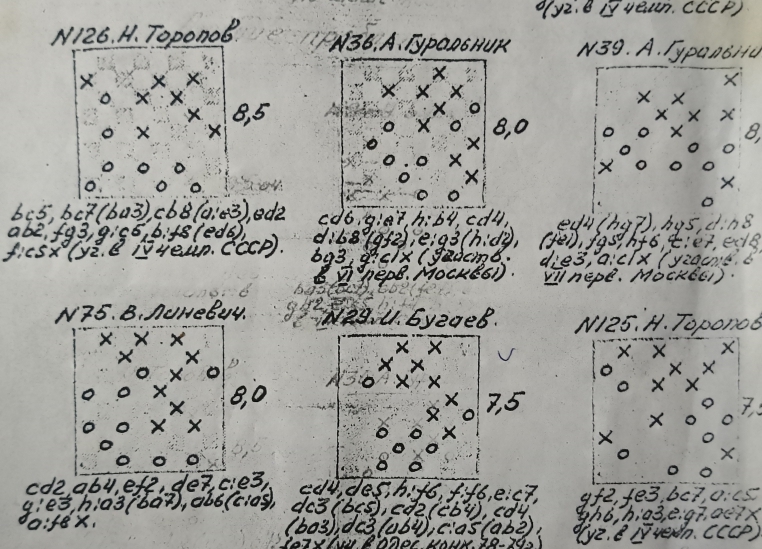 (уг. в IV чемп. СССР)
N126. Н. Торопов
8,5
bc5, bc7(ba3), cb8(a:e3), ed2
ab2, fg3, g:c6, b:f8(ed6),
f:c5x (уг. в IV чемп. СССР).
N36. А. Гуральник
8,0
cd6, g:e7, h:b4, cd4,
d:b8(gf2), e:g3(h:d2),
bg3, g:c1x (участв.
в VI перв. Москвы).
N39. А. Гуральни
8,
ed4(hg7), hg5, d:h8
fg5, hf6, ed8,
d:e3, a:c1x (участв. в
VII перв. Москвы).
N75. В. Линевич.
8,0
cd2, ab4, ef2, de7, c:e3,
g:e3, h:a3(ba7), ab6(c:a5),
a:f8x.
N29. И. Бугаев.
7,5
cd4, de5, h:f6, f:f6, e:c7,
dc3(bc5), cd2(cb4), cd4,
(ba3), dc3(ab4), c:a5(ab2),
N125. Н. Торопов
7,5
gf2, fe3, bc7, a:c5
gh6, h:a3, e:g7, ae7x
(уг. в IV чемп. СССР)